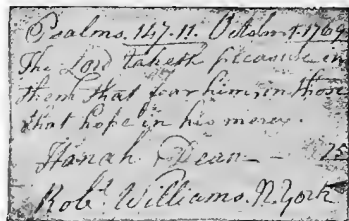 Psalms. 147.11. Octobr. 1. 1769
The Lord taketh pleasure in
them that fear him, in those
that hope in his mercy.
Hanah Dean — 25
Robt. Williams. N. York